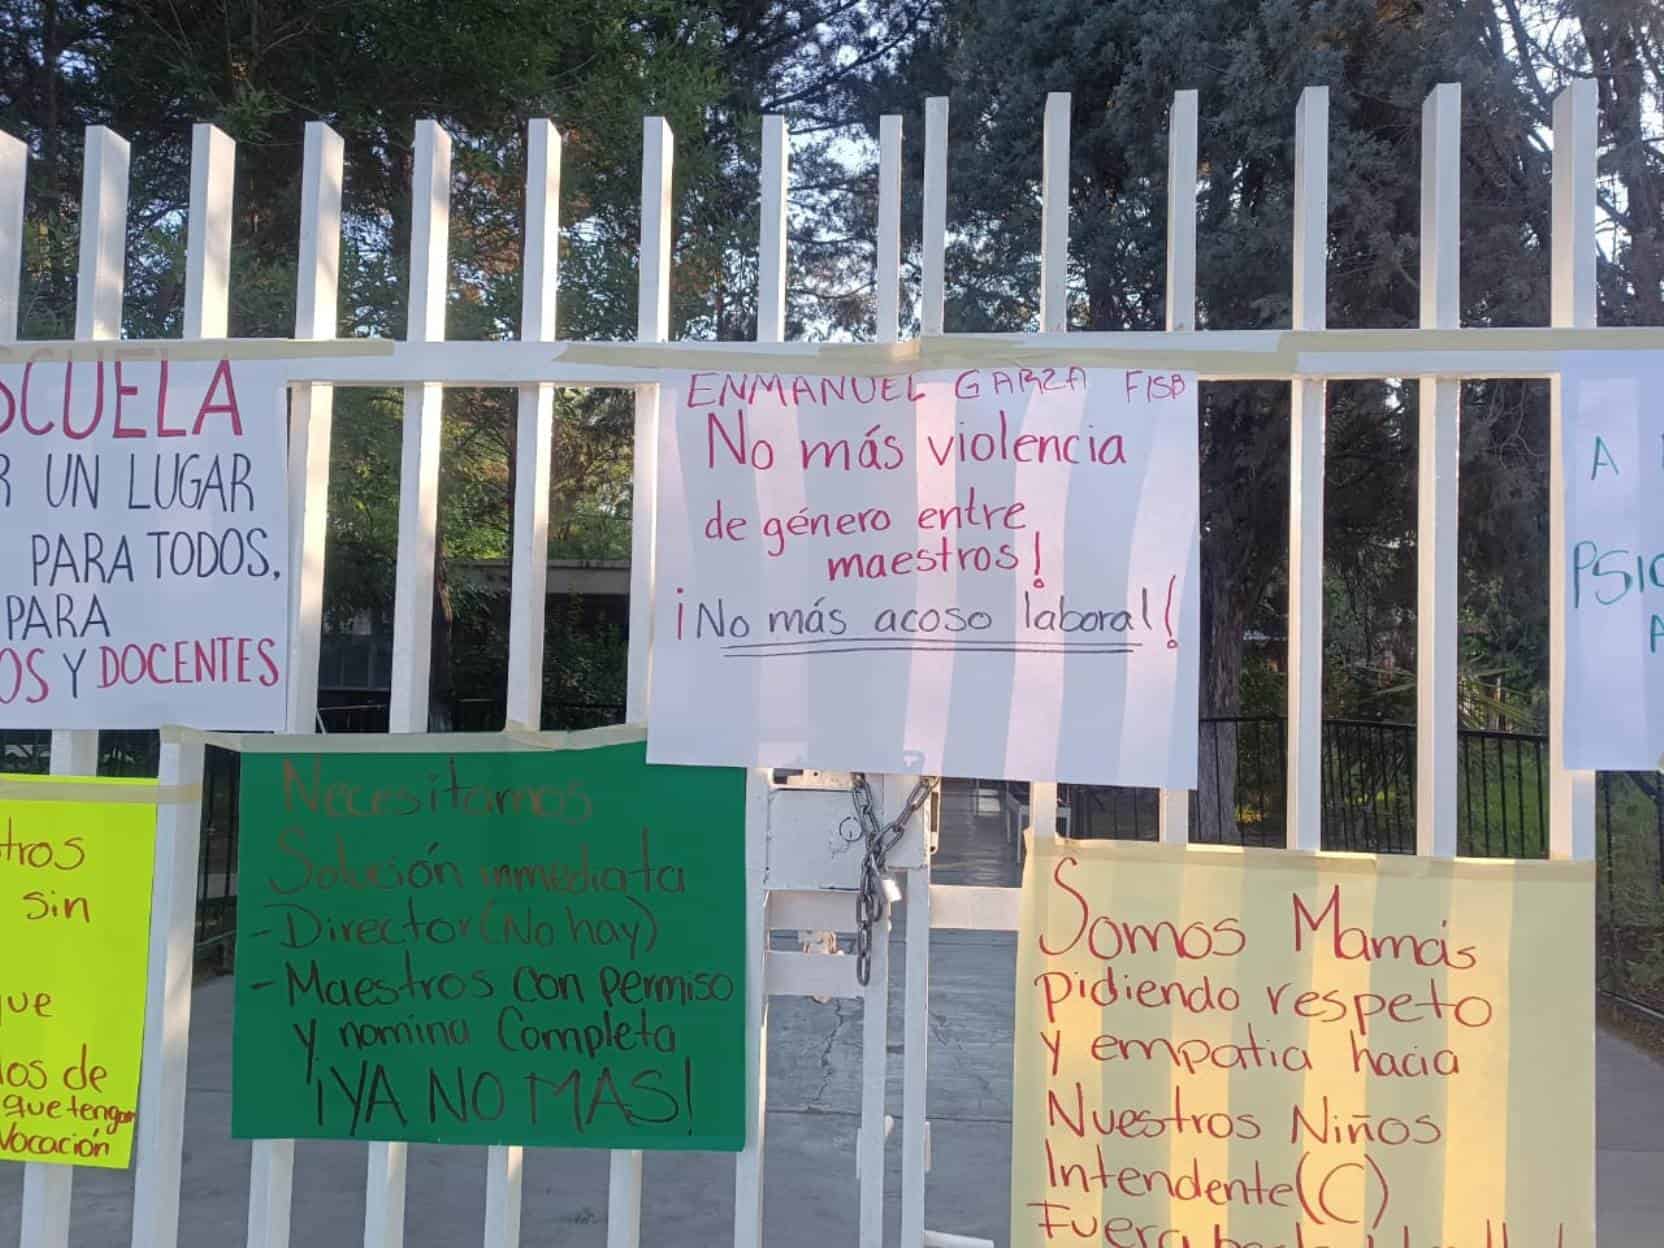 SCUELA
R UN LUGAR
PARA TODOS,
PARA
OS Y DOCENTES
ENMANUEL GARZA FISB
No más violencia
de género entre
maestros!
¡No más acoso laboral!
A
PSIC
A
tros
sin
que
los de
que tengan
Vocación
Necesitamos
Solución inmediata
- Director (No hay)
- Maestros con permiso
y nomina Completa
¡YA NO MAS!
Somos Mamás
pidiendo respeto
y empatia hacia
Nuestros Niños
Intendente (C)
Fuera